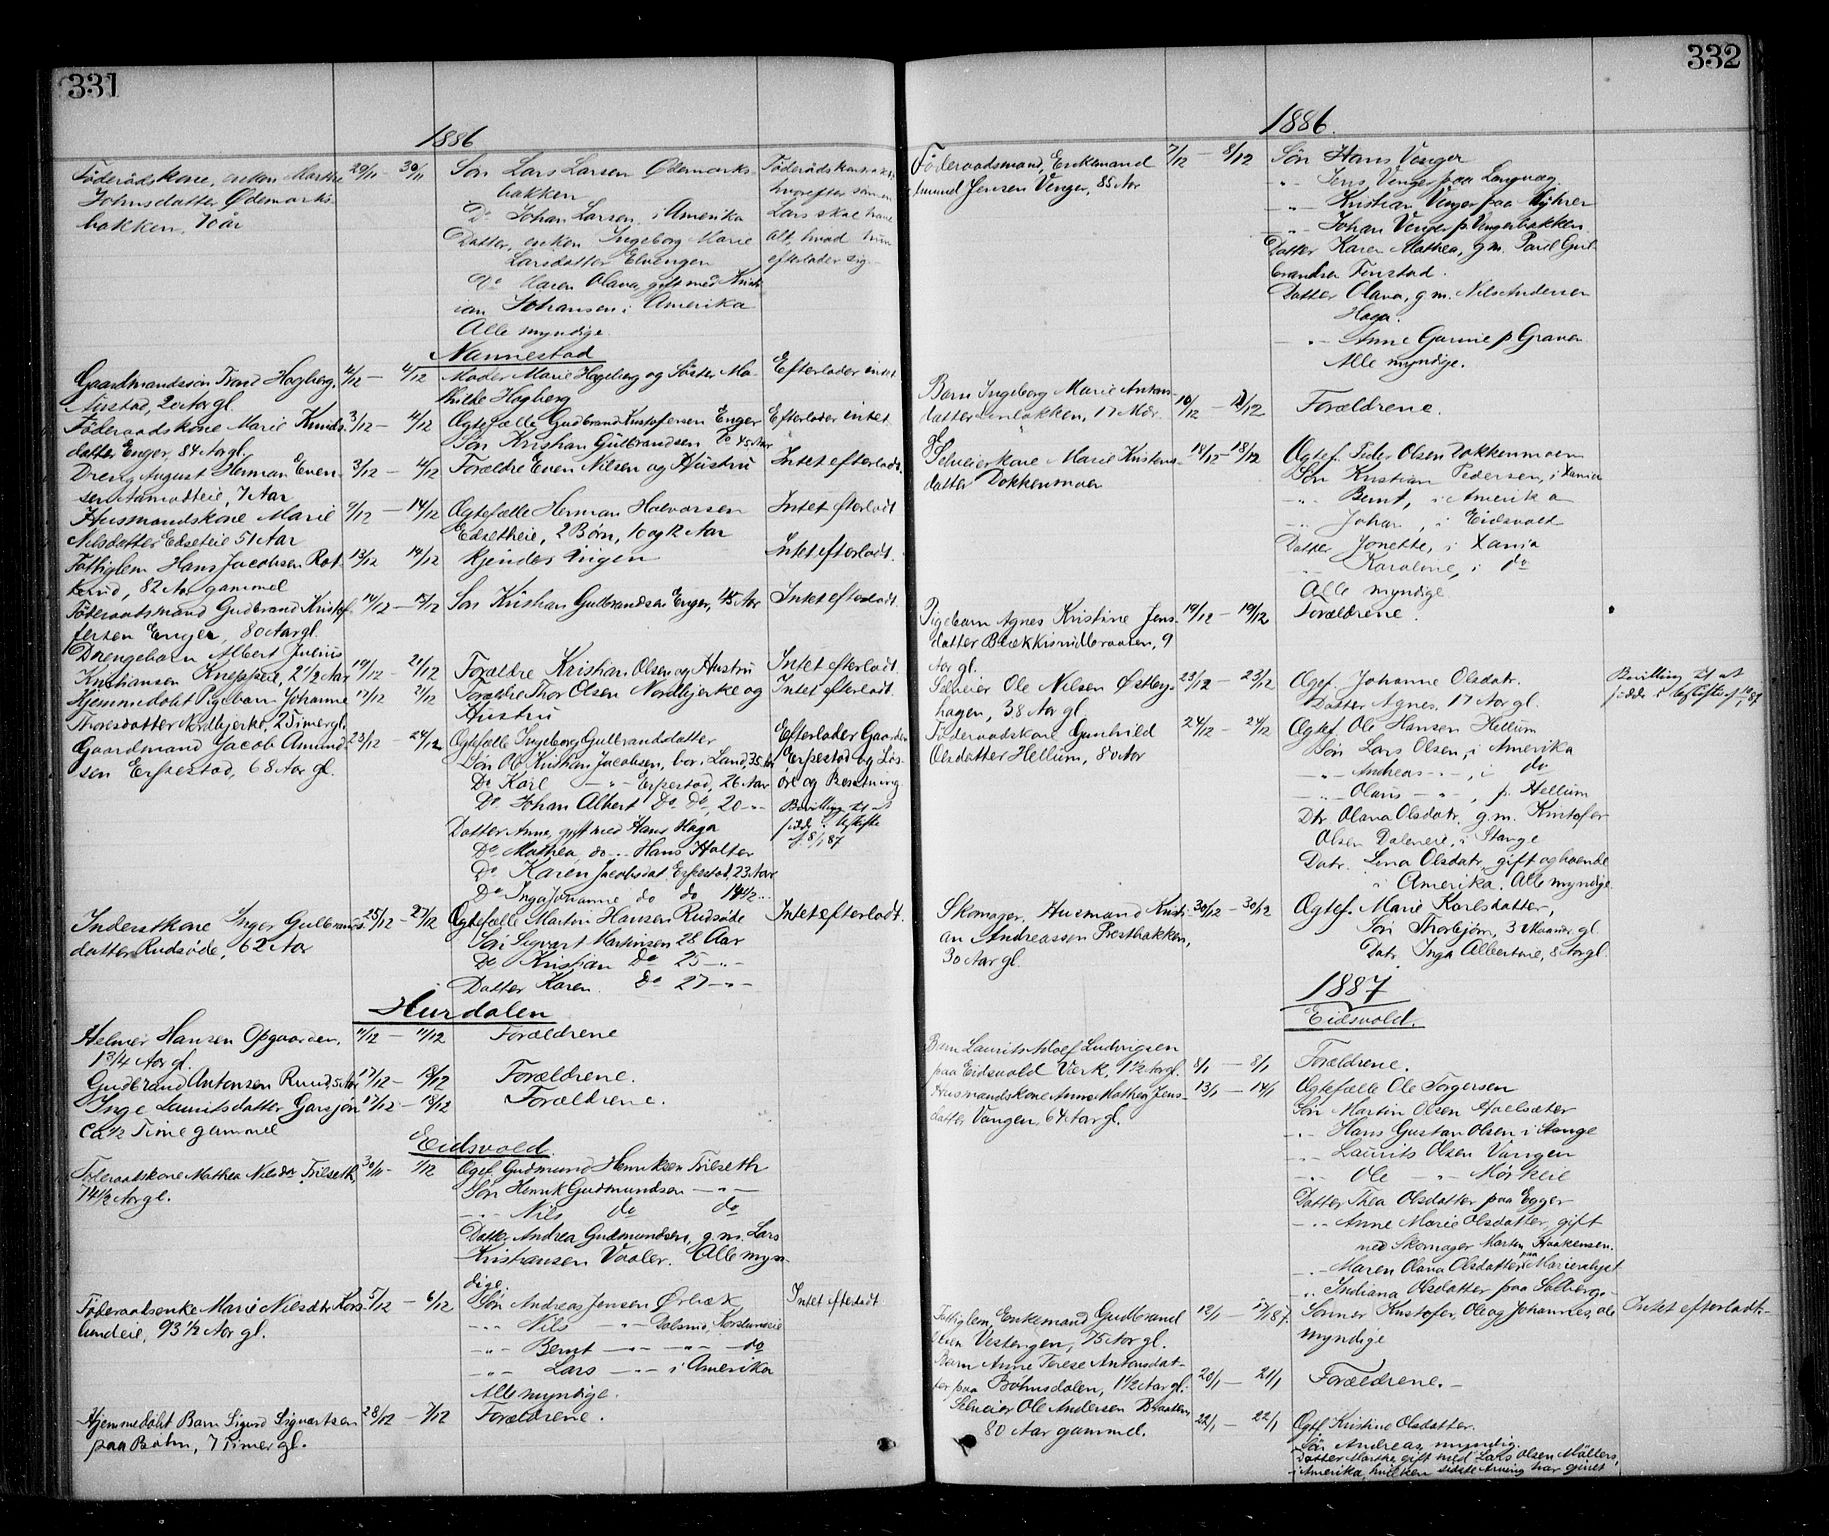 331
1886
Föderådskone, enken Marthe
Johnsdatter Ödemarks-
bakken, 70 år
29/11 — 30/11
Sön Lars Larsen Ödemarks-
bakken
Do Johan Larsen i Amerika
Datter, enken Ingeborg Marie
Larsdatter Elvengen
do Karen Olava, gift med Krist-
ian Johansen i Amerika
Alle myndige.
hvorefter sönnen
Lars skal have
alt, hvad hun
efterlader sig.
Nannestad
Gaardmandssön Trond Hogberg,
20 Aar gl.
4/12
Moder Marie Hogberg og Söster Ma-
thilde Hogberg
Efterlader intet
Föderaadskone Marie Knuds-
datter Enger, 84 Aar gl.
3/12 — 4/12
Ægtefælle Gudbrand Kristofersen Enger
Sön Kristian Gulbrandsen Do 45 Aar
Efterlader intet
Dreng August Herman Even-
sen 7 Aar
3/12 — 4/12
Forældre Even Nilsen og Hustru
Intet efterladt.
Husmandskone Marie
Nilsdatter Edseteie 51 Aar
9/12 — 14/12
Ægtefælle Herman Halvorsen
Edsetheie, 2 Börn, 10 og 12 Aar
Intet efterladt
Fattiglem Hans Jacobsen Rot-
82 Aar gammel
13/12 14/12
Kjendes ingen
Intet efterladt.
Föderaadsmand Gudbrand Kristof-
fersen Enger, 80 Aar gl.
14/12 — 15/12
Sön Kristian Gudbrandsen Enger, 45 Aar
Intet efterladt.
Drengebarn Albert Julius
Kristiansen Kneppeie, 2 1/2 Aar
19/12 — 21/12
Forældre Kristian Olsen og Hustru
Intet efterladt.
Hjemmedöbt Pigebarn Johanne
Thorsdatter Nordbjerke, 2 Timer gl.
17/12 21/12
Forældre Thor Olsen Nordbjerke og
Hustru
Intet efterladt.
Gaardmand Jacob Amund-
sen Erpestad, 68 Aar gl.
23/12 — 24/12
Ægtefælle Ingeborg Gulbrandsdatter
Sön Ole Kristian Jacobsen, bor i Land, 35 Aar
Do Karl —"— Erpestad, 26 Aar
Do Johan Albert Do, Do, 20 -"-
Datter Anne, gift med Hans Haga
Do Mathea, do -"- Hans Holter
Do Karen Jacobsdat. Erpestad, 23 Aar
Do Inga Johanne do do 14 1/2 -"-
Efterlader Gaarden
Erpestad og Lös-
öre og Besætning
Bevilling til at
sidde i
f. 8/1 87
Inderstkone Inger Gulbrands-
datter Rudsöde, 62 Aar
25/12 — 27/12
Ægtefælle Martin Hansen Rudsöde
Sön Sigvart Martinsen 28 Aar
Do Kristian Do 25 -"-
Datter Karen Do 27 -"-
Intet efterladt.
Hurdalen
Helmer Hansen Opgaarden,
1 3/4 Aar gl.
11/12 — 11/12
Forældrene
Gudbrand Antonsen Ruud, 5 Aar
17/12 — 18/12
Forældrene.
Inge Lauritsdatter Garsjön
ca 1/2 Time gammel
17/12 — 18/12
Forældrene.
Eidsvold.
Föderaadskone Mathea Nilsdr Trilseth,
74 1/2 Aar gl.
30/11 — 1/12
Ægtef. Gudmund Henriksen Trilseth
Sön Henrik Gudmundsen —"—
-"- Nils do do
Datter Andrea Gudmundsen, g.m. Lars
Kristiansen Vaaler. Alle myn-
dige.
Föderaadsenke Marie Nilsdtr Kors-
lundeie, 93 1/2 Aar gl.
5/12 — 6/12
Sön Andreas Jensen Örbæk
-"- Nils —"— Korslundeie
-"- Bernt —"— —"— do
-"- Lars —"— i Amerika
Alle myndige.
Intet efterladt
Hjemmedöbt Barn Sigurd Sigvartsen
paa Böhn, 7 Timer gl.
28/12 — 7/12
Forældrene.
332
1886.
Föderaadsmand, Enkemand
Amund Jensen Venger, 85 Aar
7/12 — 8/12
Sön Hans Venger
-"- Jens Venger paa Langvæg
-"- Kristian Venger paa Myhrer
-"- Johan Venger p. Vengerbakken.
Datter Karen Mathea, g.m. Paul Gul-
brandsen Finstad.
Datter Olava, g.m. Nils Andersen
Haga.
-"- Anne Gurine p Graven
Alle myndige.
Barn Ingeborg Marie Antons-
datter 17 Mdr.
10/12 — 12/12
Forældrene.
Selveierkone Marie Kristens-
datter Dokkenmoen
18/12 — 18/12
Ægtef. Peder Olsen Dokkenmoen
Sön Kristian Pedersen, i Xania
-"- Bernt, i Amerika
-"- Johan, i Eidsvold
Datter Jonette, i Xania
-"- Karoline, i do
Alle myndige
Pigebarn Agnes Kristine Jens-
datter 9
Aar gl.
19/12 — 19/12
Forældrene.
Selveier Ole Nilsen Östby-
hagen, 38 Aar gl
23/12 — 23/12
Ægtef. Johanne Olsdatr.
Datter Agnes. 17 Aar gl.
Bevilling til at
sidde i
Föderaadskone Gunhild
Olsdatter Hellum, 80 Aar
24/12 — 24/12
Ægtef. Ole Hansen Hellum
Sön Lars Olsen, i Amerika
-"- Andreas -"-, i do
-"- Olaus -"-, p. Hellum
Dtr. Olava Olsdatr. g.m. Kristofer
Olsen Daleneie, i Stange
Datr. Lina Olsdatr, gift og boende
i Amerika. Alle myndige
Skomager, Husmand Kristi-
an Andreassen Prestbakken,
30 Aar gl.
30/12 — 30/12
Ægtef. Marie Karlsdatter,
Sön Thorbjörn, 3 Maaner gl.
Datr. Inga Albertine, 8 Aar gl.
1887
Eidsvold.
Barn Laurits Adolf Ludvigsen
paa Eidsvold Værk, 1 1/2 Aar gl.
8/1 — 8/1
Forældrene.
Husmandskone Anne Mathea Jens-
datter Vangen, 64 Aar gl.
13/1 — 14/1
Ægtefælle Ole Torgersen
Sön Martin Olsen Hoelsæter
-"- Hans Gustav Olsen i Stange
-"- Laurits Olsen Vangen
-"- Ole —"— Mörkeie
Datter Thea Olsdatter paa Egger
-"- Anne Marie Olsdatter, gift
med Skomager Martin Haakensen.
-"- Maren Olava Olsdatter paa Marienslyst
-"- Indiana Olsdatter paa Solberg
Fattiglem, Enkemand Gudbrand
Olsen Vestengen, 75 Aar gl.
12/1 — 17/1 87.
Sönner Kristofer, Ole og Johannes, alle
myndige
Intet efterladt.
Barn Anne Terese Antonsdat-
ter paa Böhnsdalen, 1 1/2 Aar gl.
20/1 — 21/1
Forældrene.
Selveier Ole Andersen Braaten,
80 Aar gammel.
22/1 — 22/1
Ægtef. Kristine Olsdatter.
Sön Andreas, myndig.
Datter Marthe, gift med Lars Olsen Mölters,
i Amerika, hvilken sidste Arving har